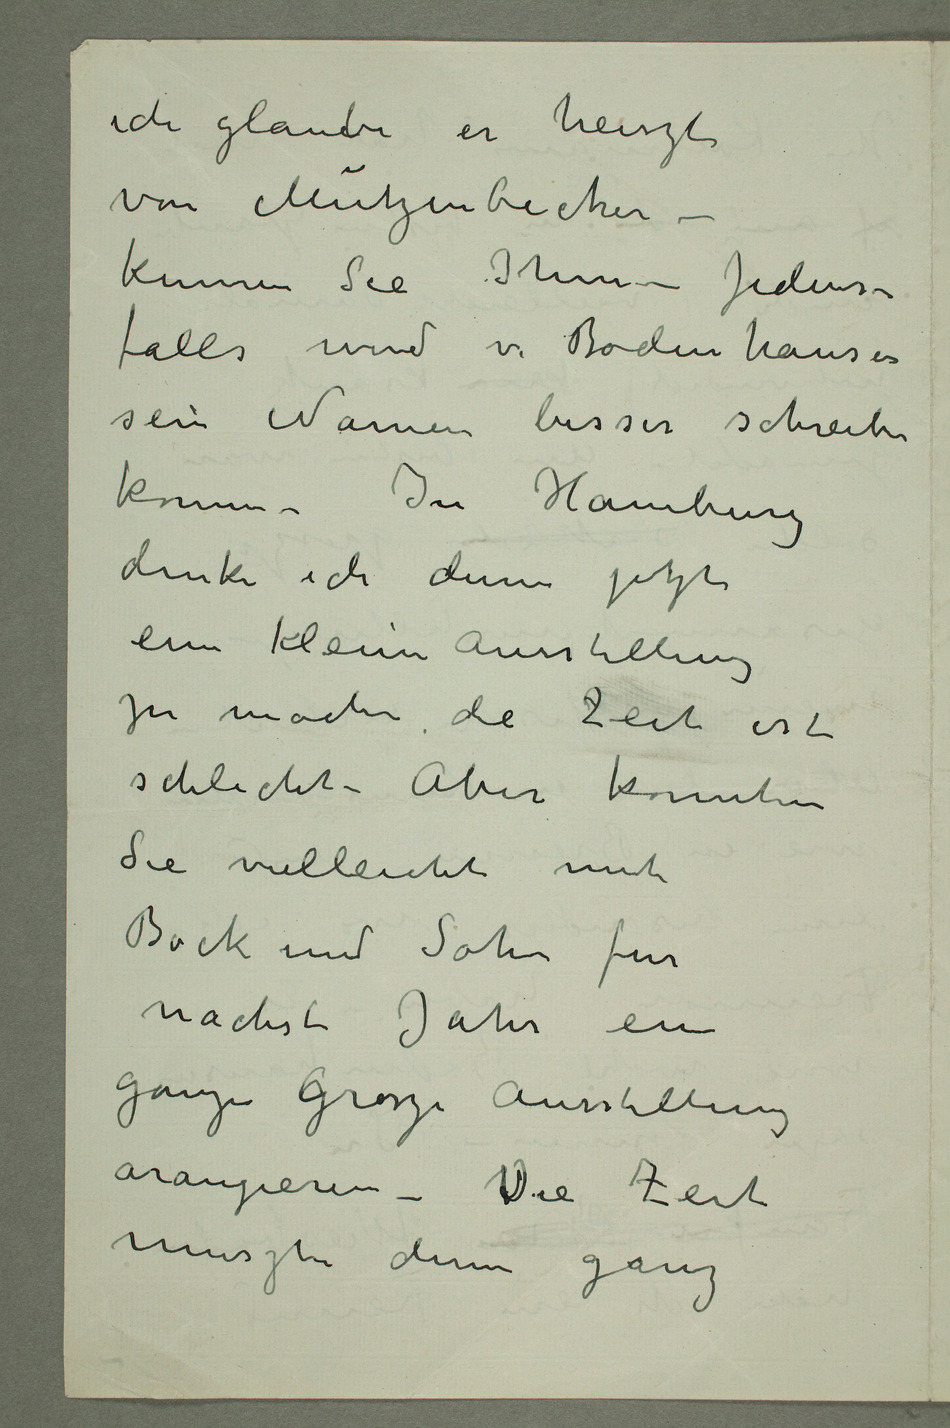 ich glaube er heiszt
von Mützenbecher –
kennen Sie Ihm – Jedens-
falls wird v. Bodenhausen
sein Namen besser schreiben
konnen – In Hamburg
denke ich denn jetzt
ein klein Ausstellung
zu machen die Zeit ist
schlecht – Aber konnten
Sie vielleicht mit
Bock und Sohn fur
nachst Jahr ein
ganze Grosze Ausstellung
arangieren – Die Zeit
muszte denn ganz